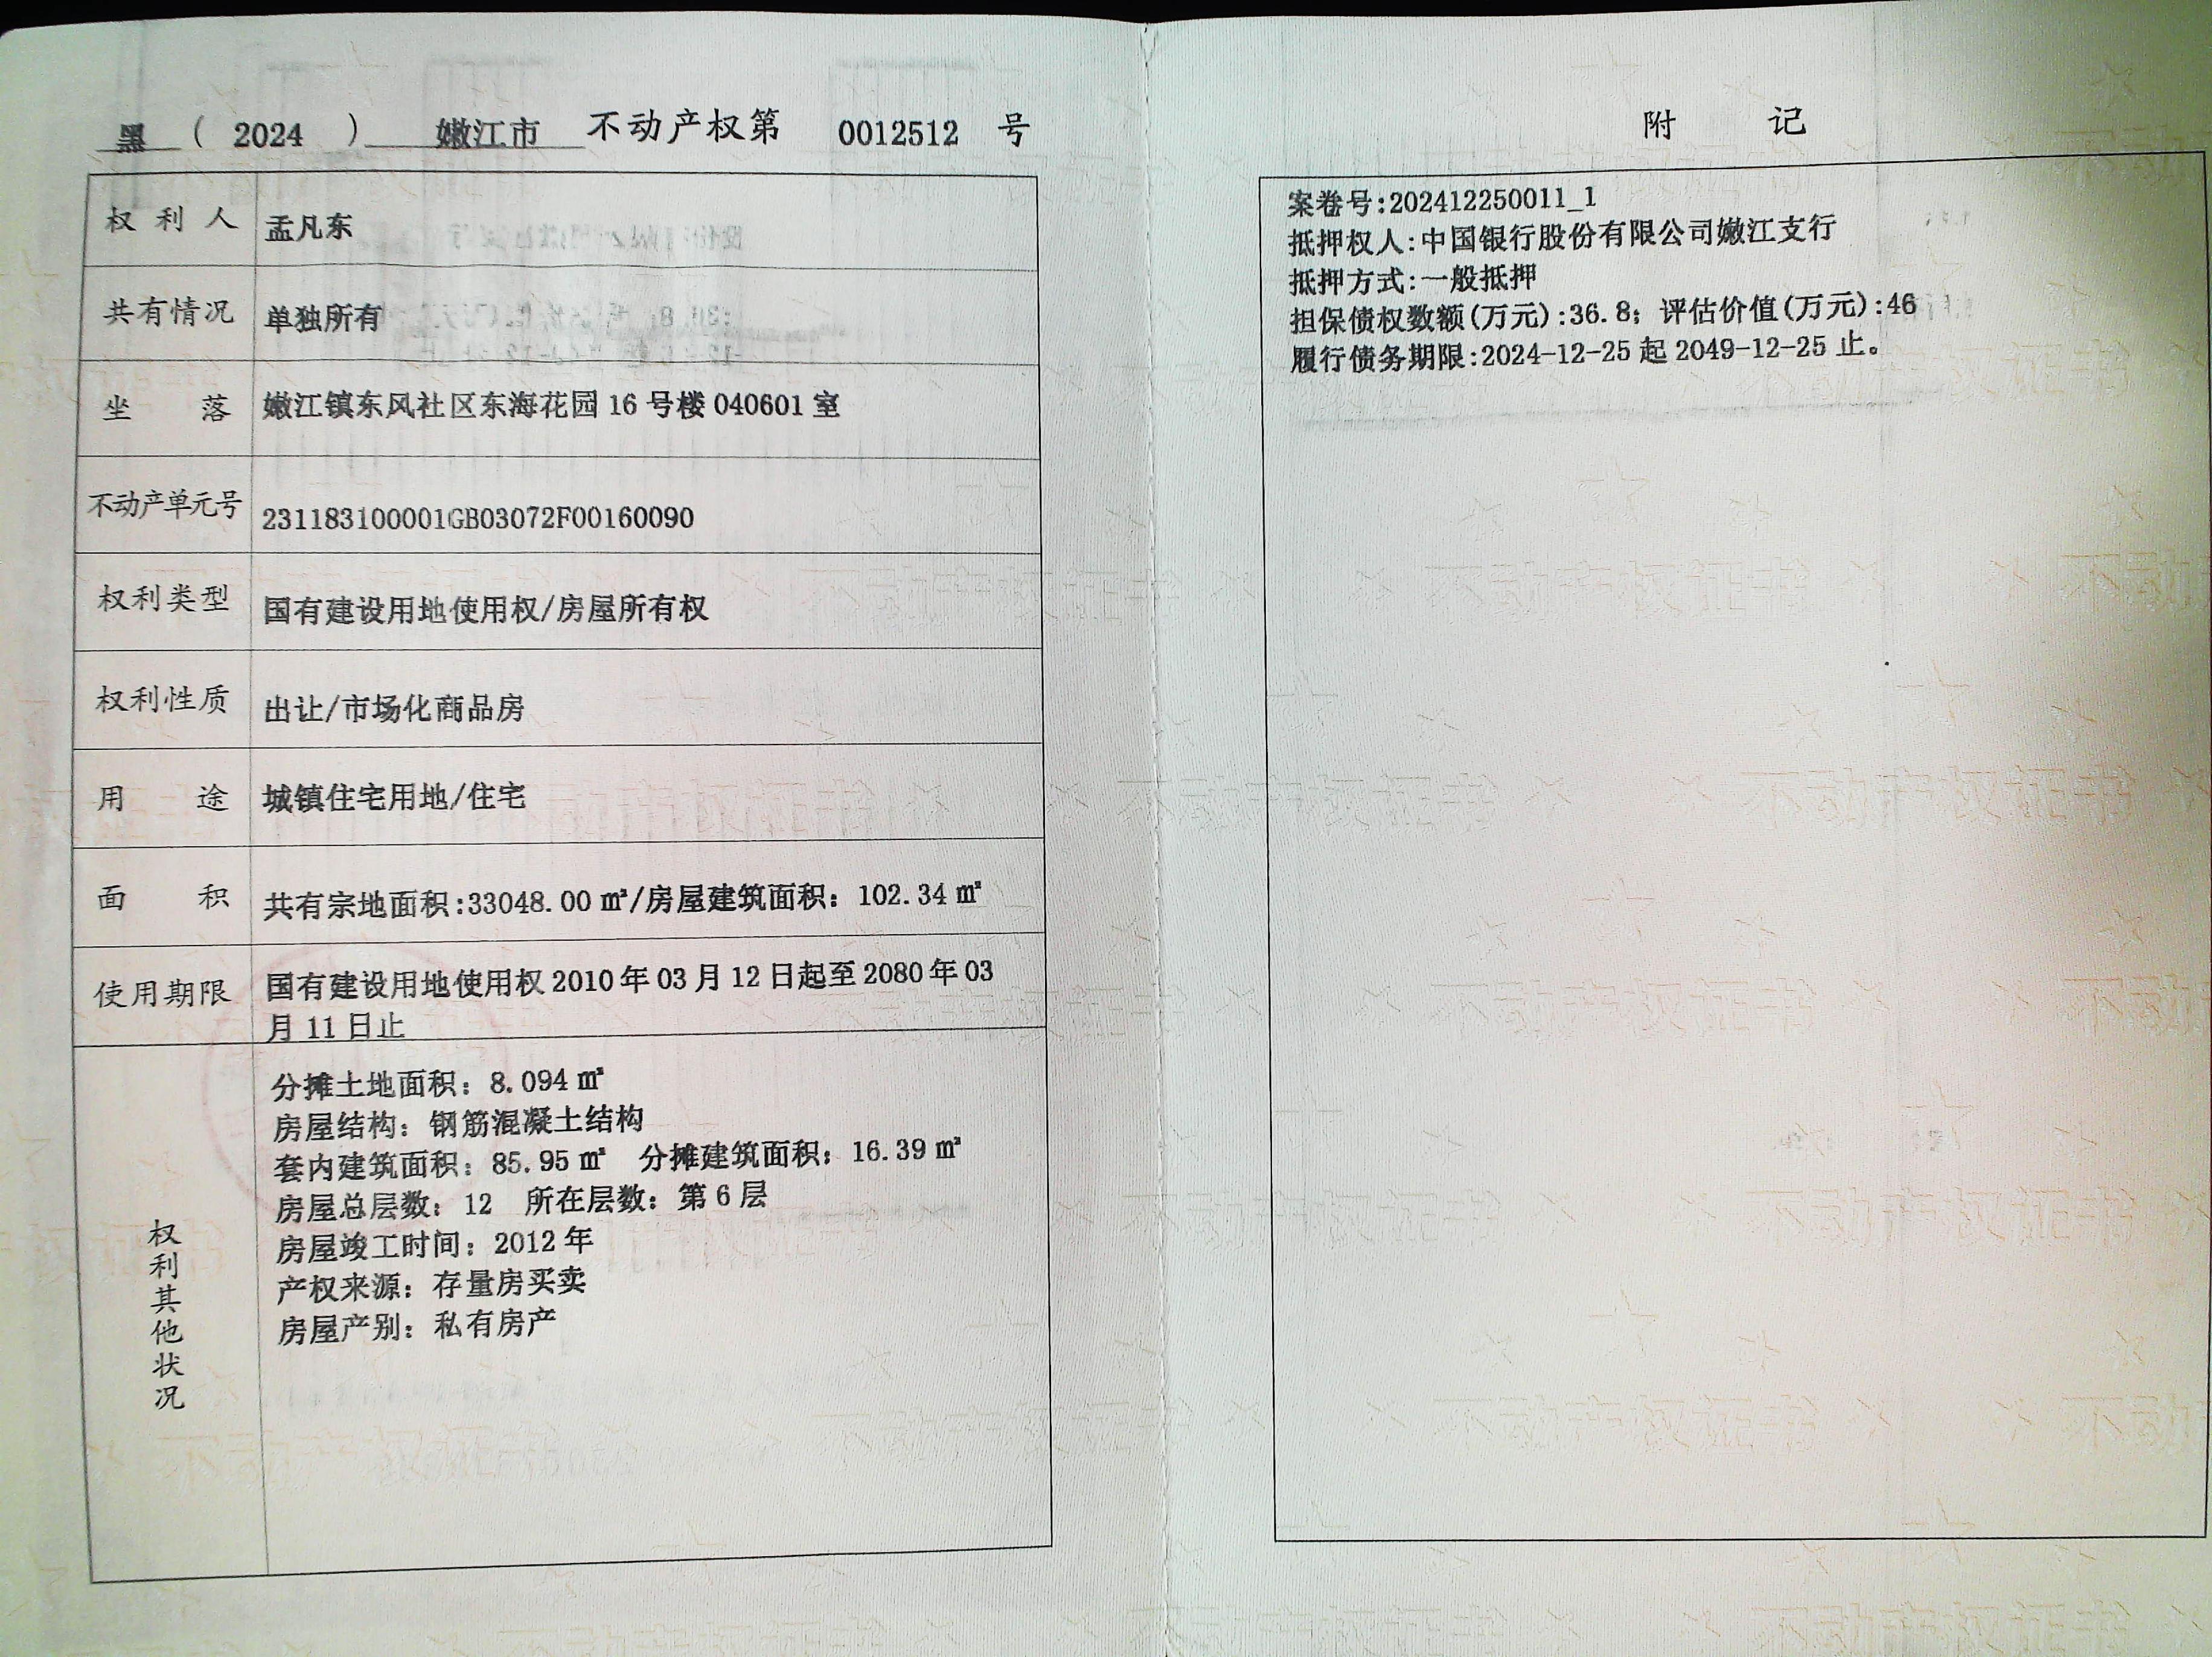 黑 ( 2024 ) 嫩江市 不动产权第 0012512 号
权利人 孟凡东
共有情况 单独所有
坐落 嫩江镇东风社区东海花园 16 号楼 040601 室
不动产单元号 231183100001GB03072F00160090
权利类型 国有建设用地使用权/房屋所有权
权利性质 出让/市场化商品房
用途 城镇住宅用地/住宅
面积 共有宗地面积:33048.00 ㎡/房屋建筑面积：102.34 ㎡
使用期限 国有建设用地使用权 2010 年 03 月 12 日起至 2080 年 03
月 11 日止
权利其他状况
分摊土地面积：8.094 ㎡
房屋结构：钢筋混凝土结构
套内建筑面积：85.95 ㎡ 分摊建筑面积：16.39 ㎡
房屋总层数：12 所在层数：第 6 层
房屋竣工时间：2012 年
产权来源：存量房买卖
房屋产别：私有房产
附记
案卷号:202412250011_1
抵押权人:中国银行股份有限公司嫩江支行
抵押方式:一般抵押
担保债权数额(万元):36.8；评估价值(万元):46
履行债务期限:2024-12-25 起 2049-12-25 止。